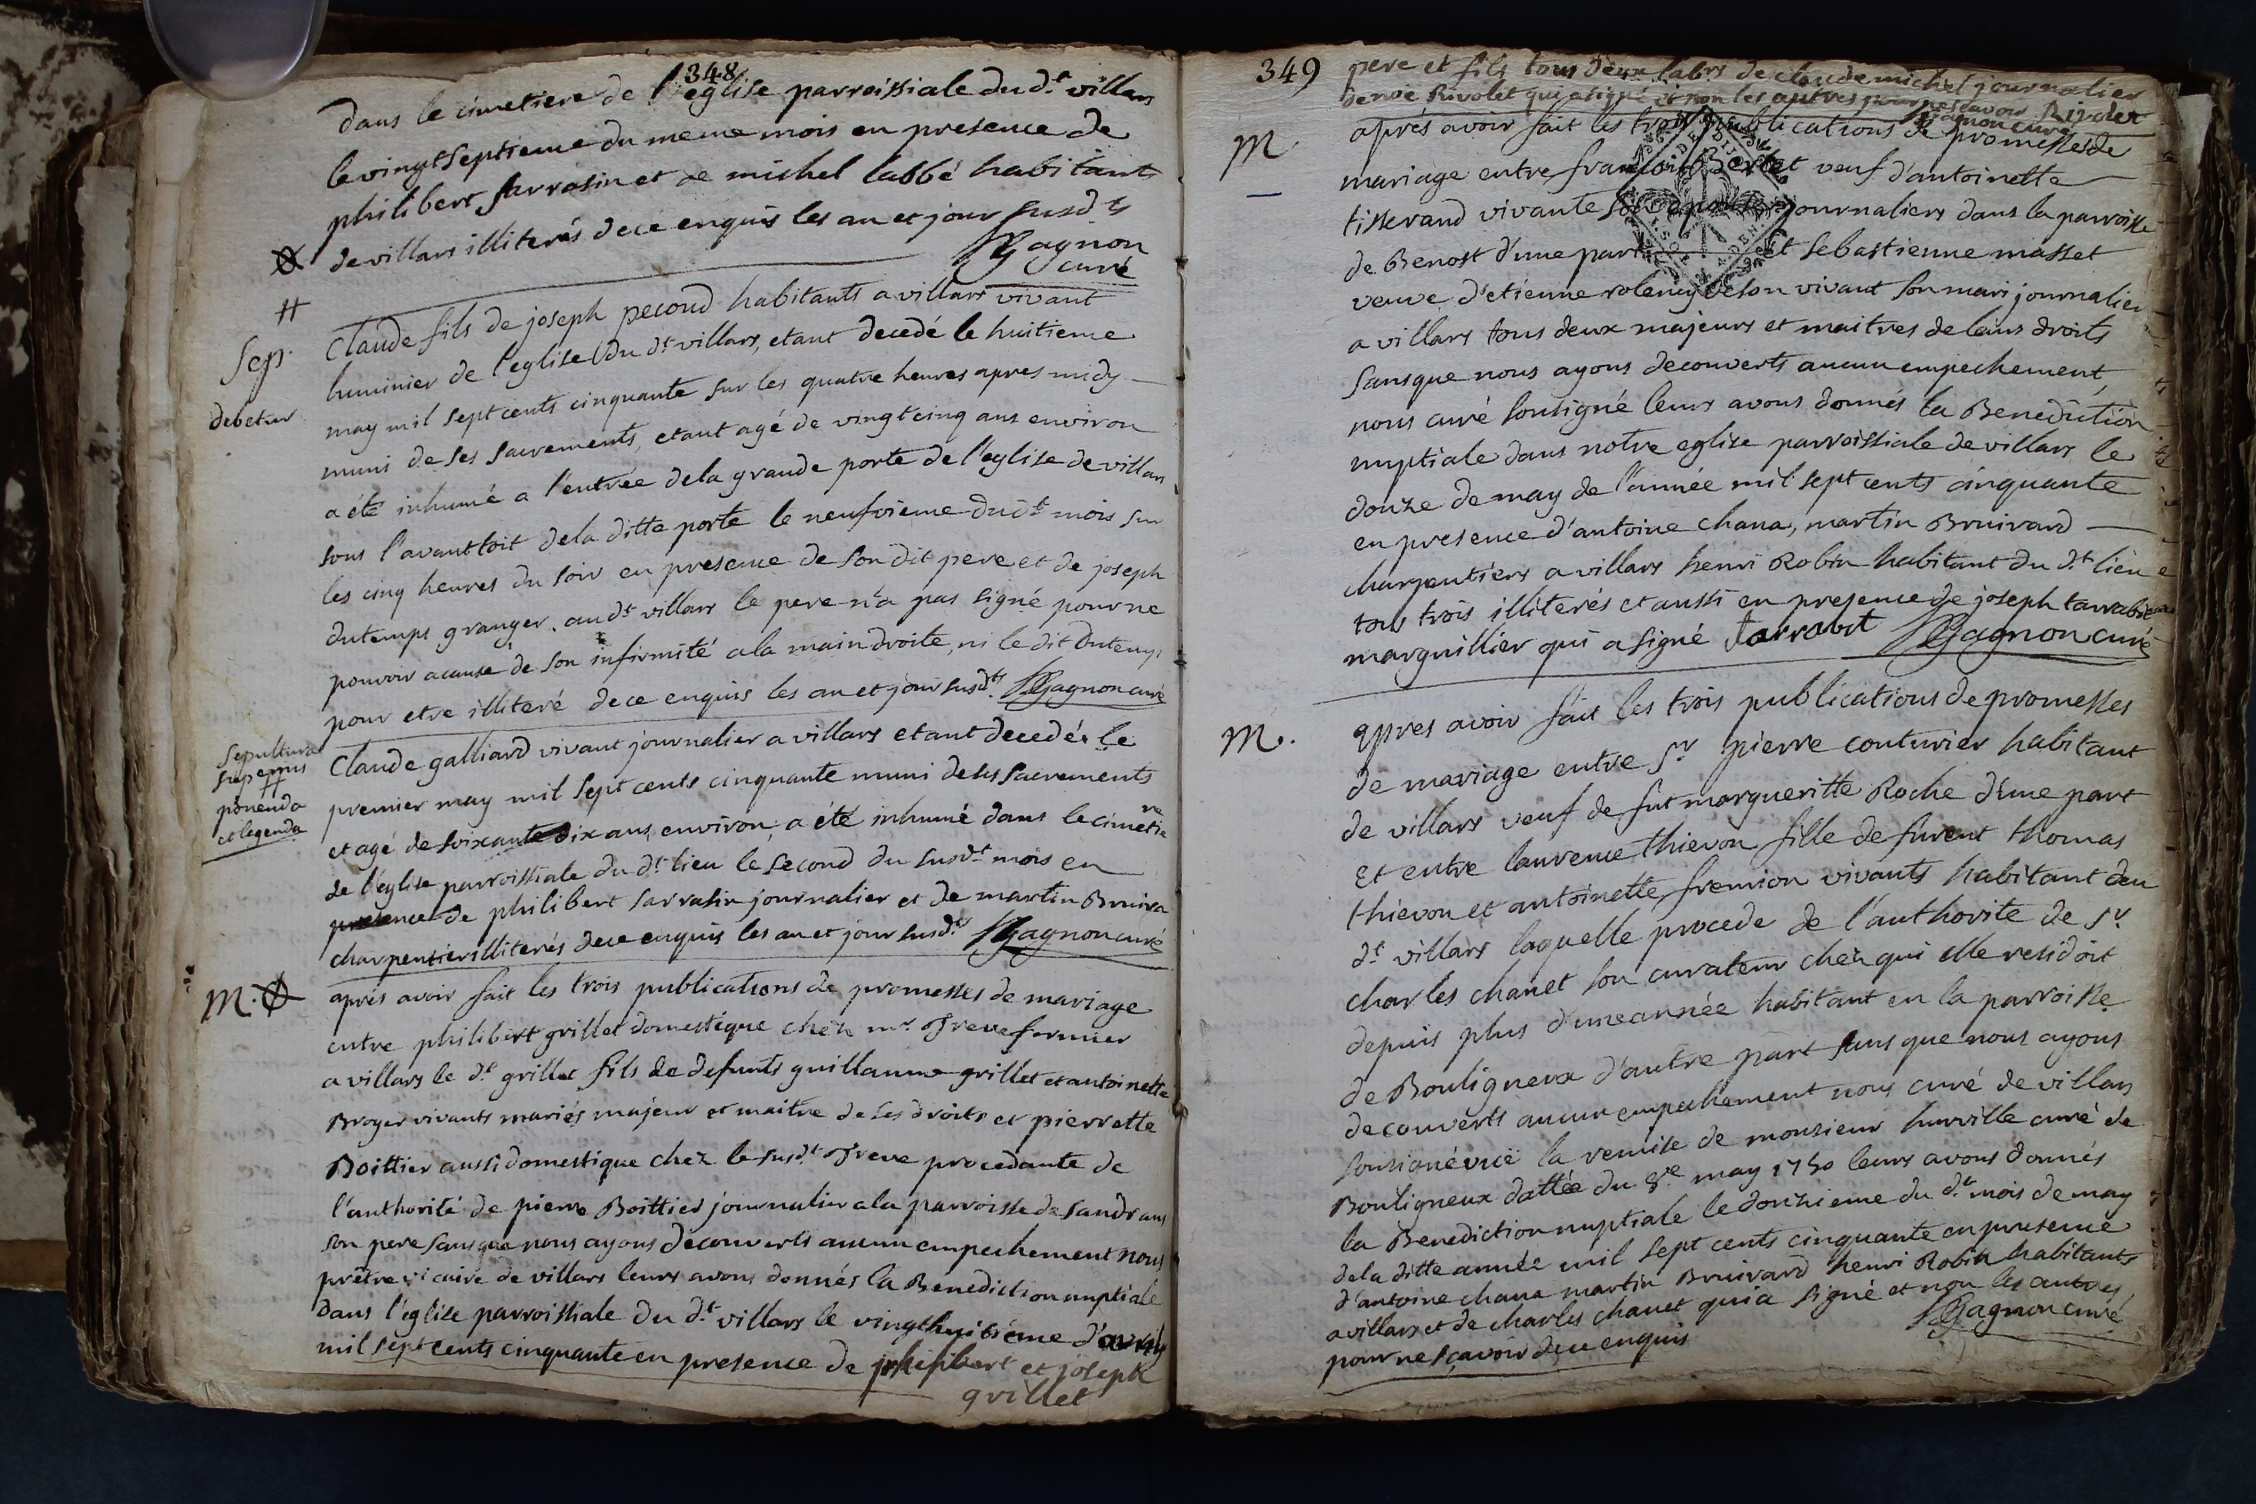 348
dans le cimetiere de l'eglise parroissiale du d.t villars
le vingt septieme du meme mois en presence de
philibert sarrasin et de michel labbé habitants
de villars illiterés de ce enquis les an et jour susd.ts
Gagnon
curé
H
Sep.
debetur
Claude fils de joseph pecoud habitants a villars vivant
luminier de l'eglise du d.t villars, etant decedé le huitieme
may mil sept cents cinquante sur les quatre heures apres midy
muni de ses sacrements, etant agé de vingt cinq ans environ
a été inhumé a l'entrée de la grande porte de l'eglise de villars
sous l'avant toit de la ditte porte le neufvieme du d.t mois sur
les cinq heures du soir en presence de son dit pere et de joseph
dutemps granger au d.t villars le pere n'a pas signé pour ne
pouvoir a cause de son infirmité a la main droite, ni le dit dutemps
pour etre illiteré de ce enquis les an et jour susd.ts Gagnon curé
Sepultura
superius
ponenda
et legenda
Claude galliard vivant journalier a villars etant decedé le
premier may mil sept cents cinquante muni de ses sacrements
et agé de soixante dix ans environ a été inhumé dans le cimetiere
de l'eglise parroissiale du d.t lieu le second du susd.t mois en
presence de philibert sarrasin journalier et de martin Bruira
charpentier illiterés de ce enquis les an et jour susd.ts Gagnon curé
M.
aprés avoir fait les trois publications de promesses de mariage
entre philibert grillet domestique chez m.r Greve fermier
a villars le d.t grillet fils de defunts guillaume grillet et antoinette
Broyer vivants mariés majeur et maitre de ses droits et pierrette
Boittier aussi domestique chez le susd.t Greve procedante de
l'authorité de pierre Boittier journalier a la parroisse de sandrans
son pere sans que nous ayons decouverts aucun empechement nous
prêtre vicaire de villars leurs avons donnés la Benediction nuptiale
dans l'eglise parroissiale du d.t villars le vingthuitiéme d'avril
mil sept cents cinquante en presence de philibert et joseph
grillet
349
pere et fils tous deux lab.rs de claude michel journalier
de noé Rivolet qui a signé et non les autres pour ne sçavoir Rivolet
Gagnon curé
M.
aprés avoir fait les trois publications de promesses de
mariage entre françois Berlet veuf d'antoinette
tisserand vivante journaliers dans la parroisse
de Benost d'une part et sebastienne masset
veuve d'etienne rolency de son vivant son mari journalier
a villars tous deux majeurs et maitres de leurs droits
sans que nous ayons decouverts aucun empechement
nous curé sousigné leurs avons donnés la Benediction
nuptiale dans notre eglise parroissiale de villars le
douze de may de l'année mil sept cents cinquante
en presence d'antoine chana, martin Bruivard
charpentiers a villars henri Robin habitant du d.t lieu
tous trois illiterés et aussi en presence de joseph tarrabit
marguillier qui a signé tarrabit Gagnon curé
M.
apres avoir fait les trois publications de promesses
de mariage entre s.r pierre couturier habitant
de villars veuf de fut margueritte Roche d'une part
Et entre laurence thievon fille de furent thomas
thievon et antoinette fremion vivants habitant du
d.t villars laquelle procede de l'authorite de s.r
charles chanet son curateur chez qui elle residoit
depuis plus d'une année habitant en la parroisse
de Bouligneux d'autre part sans que nous ayons
decouverts aucun empechement nous curé de villars
sousigné vüe la remise de monsieur hurville curé de
Bouligneux dattée du 8.e may 1750 leurs avons donnés
la Benediction nuptiale le douzieme du d.t mois de may
de la ditte année mil sept cents cinquante en presence
d'antoine chana martin Bruivard henri Robin habitants
a villars et de charles chanet qui a signé et non les autres
pour ne sçavoir de ce enquis Gagnon curé